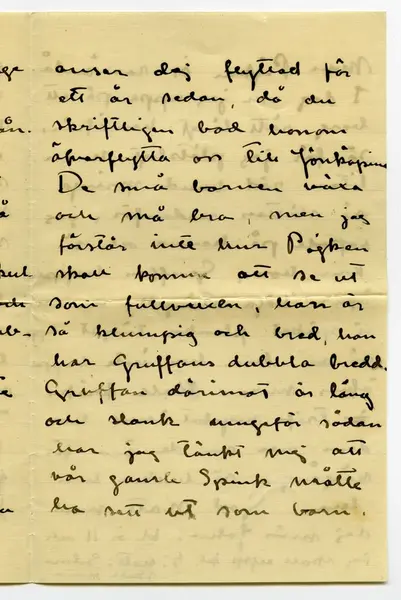 anser dej flyttad för
ett år sedan, då du
skriftligen bad honom
öfverflytta oss till Jönköping
De små barnen växa
och må bra, men jag
förstår inte hur Pågken
skall komma att se ut
som fullvuxen, han är
så klumpig och bred, han
har Gruffans dubbla bredd.
Gruffan däremot är lång
och slank ungefär sådan
har jag tänkt mej att
vår gamle Spink måtte
ha sett ut som barn.